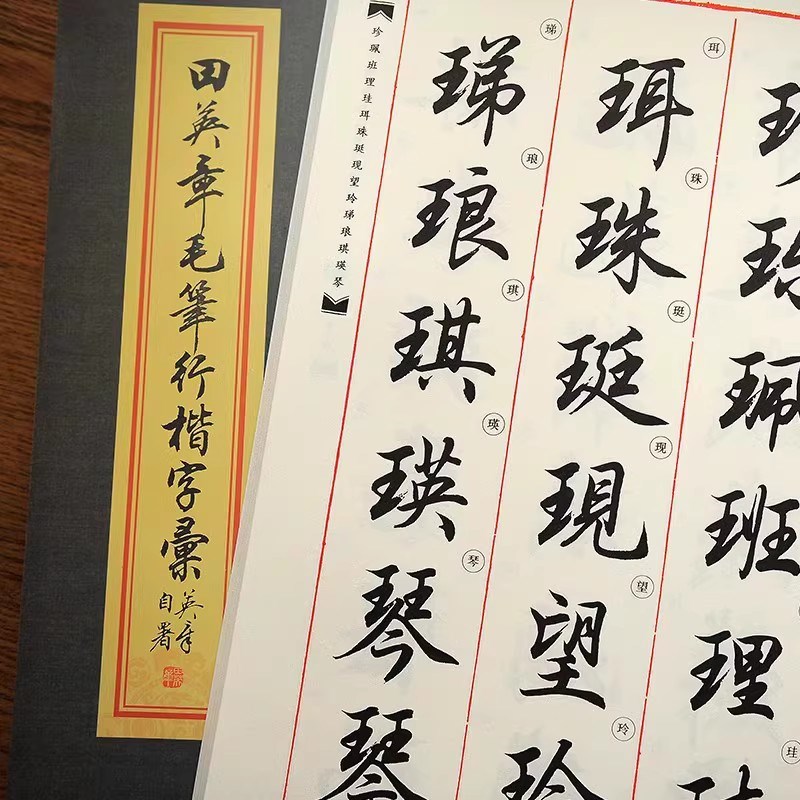 田英章毛筆行楷字彙
英章
自署
珍珮班理珪珥珠珽现望玲珶琅琪瑛琴
珍珮班理
珪
珥珠珽現望玲
珥
珠
珽
现
望
玲
珶琅琪瑛琴琴
珶
琅
琪
瑛
琴